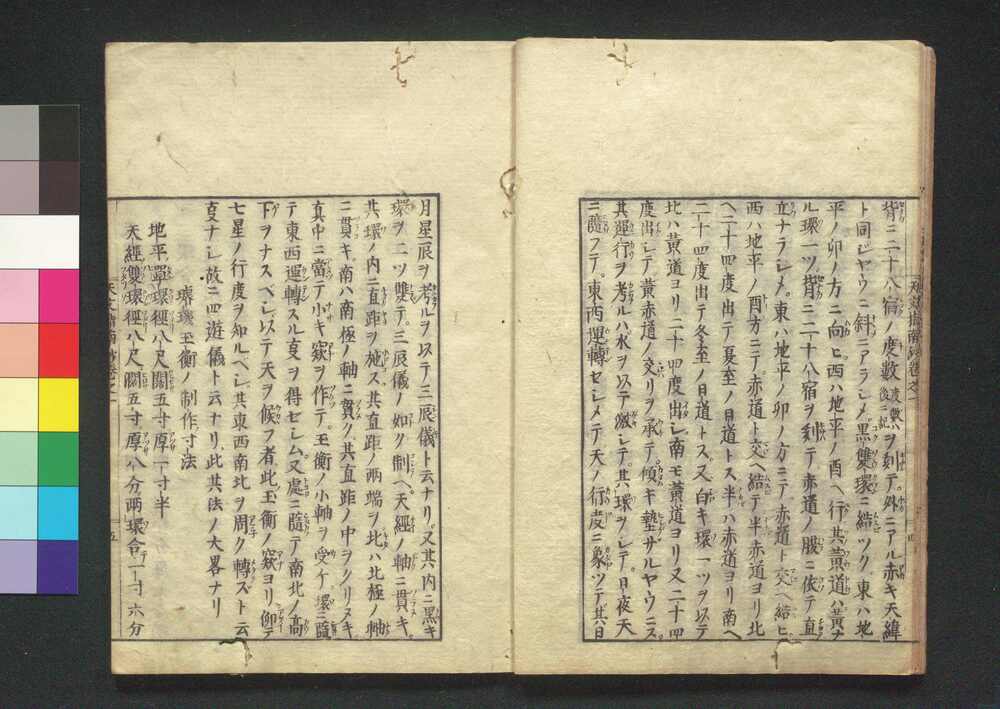 背ニ二十八宿ノ度數度數ハ後ニ記ヲ刻テ外ニアル赤キ天緯
ト同ジヤウニ斜ニアラシメ黒雙環ニ結ツク東ハ地
平ノ卯ノ方ニ向ヒ西ハ地平ノ酉ヘ行其黄道ハ黄ナ
ル環一ツ背ニ二十八宿ヲ刻テ赤道ノ腹ニ依テ直
立ナラシメ東ハ地平ノ卯ノ方ニテ赤道ト交ヘ結ヒ
西ハ地平ノ酉方ニテ赤道ト交ヘ結テ半赤道ヨリ北
ヘ二十四度出テ夏至ノ日道トス半ハ赤道ヨリ南ヘ
二十四度出テ冬至ノ日道トス又白キ環一ツヲ以テ
北ハ黄道ヨリ二十四度出シ南モ黄道ヨリ又二十四
度出シテ黄赤道ノ交リヲ承テ傾キ墊サルヤウニス
其運行ヲ考ルハ水ヲ以テ激シテ其環ヲシテ日夜天
ニ隨フテ東西運轉セシメテ天ノ行度ニ象ツテ其日
月星辰ヲ考ルヲ以テ三辰儀ト云ナリ又其内ニ黒キ
環ヲ二ツ雙テ三辰儀ノ如ク制ヘ天經ノ軸ニ貫キ
共環ノ内ニ直距ヲ施ス其直距ノ两端ヲ北ハ北極ノ軸
ニ貫キ南ハ南極ノ軸ニ貫ク其直距ノ中ヲクリヌキ
真中ニ當テ小キ窽ヲ作テ玉衡ノ小軸ヲ受ケ環ニ隨
テ東西運轉スル叓ヲ得セシム又處ニ隨テ南北ノ高
下ヲナスベシ以テ天ヲ候フ者此玉衡ノ窽ヨリ仰テ
七星ノ行度ヲ知ルベシ其東西南北ヲ周ク轉ズト云
叓ナシ故ニ四遊儀ト云ナリ此其法ノ大畧ナリ
璿璣玉衡ノ制作寸法
地平單環經八尺闊五寸厚一寸半
天經雙環經八尺闊五寸厚八分两環合一寸六分